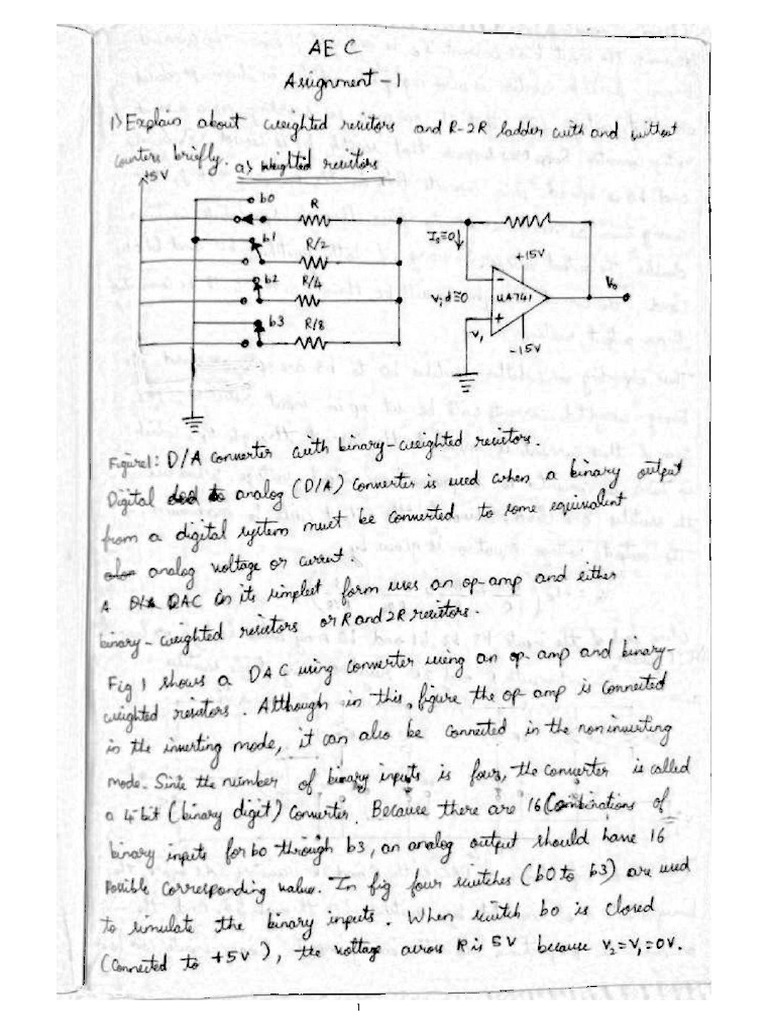 AEC
Assignment-1
1) Explain about weighted resistors and R-2R ladder with and without
counters briefly. a) Weighted resistors
+5V
b0
R
b1
R/2
b2
R/4
b3
R/8
Is≅0
+15V
Vid≅0
UA741
V0
V1
-15V
Figure1: D/A converter with binary-weighted resistors.
Digital to analog (D/A) converter is used when a binary output
from a digital system must be converted to some equivalent
analog voltage or current.
A DAC in its simplest form uses an op-amp and either
binary-weighted resistors or R and 2R resistors.
Fig 1 shows a DAC using converter using an op-amp and binary-
weighted resistors. Although in this figure the op-amp is connected
in the inverting mode, it can also be connected in the noninverting
mode. Since the number of binary inputs is four, the converter is called
a 4-bit (binary digit) converter. Because there are 16 Combinations of
binary inputs for b0 through b3, an analog output should have 16
possible corresponding value. In fig four switches (b0 to b3) are used
to simulate the binary inputs. When switch b0 is closed
(connected to +5V), the voltage across R is 5V because V2=V1=0V.
1